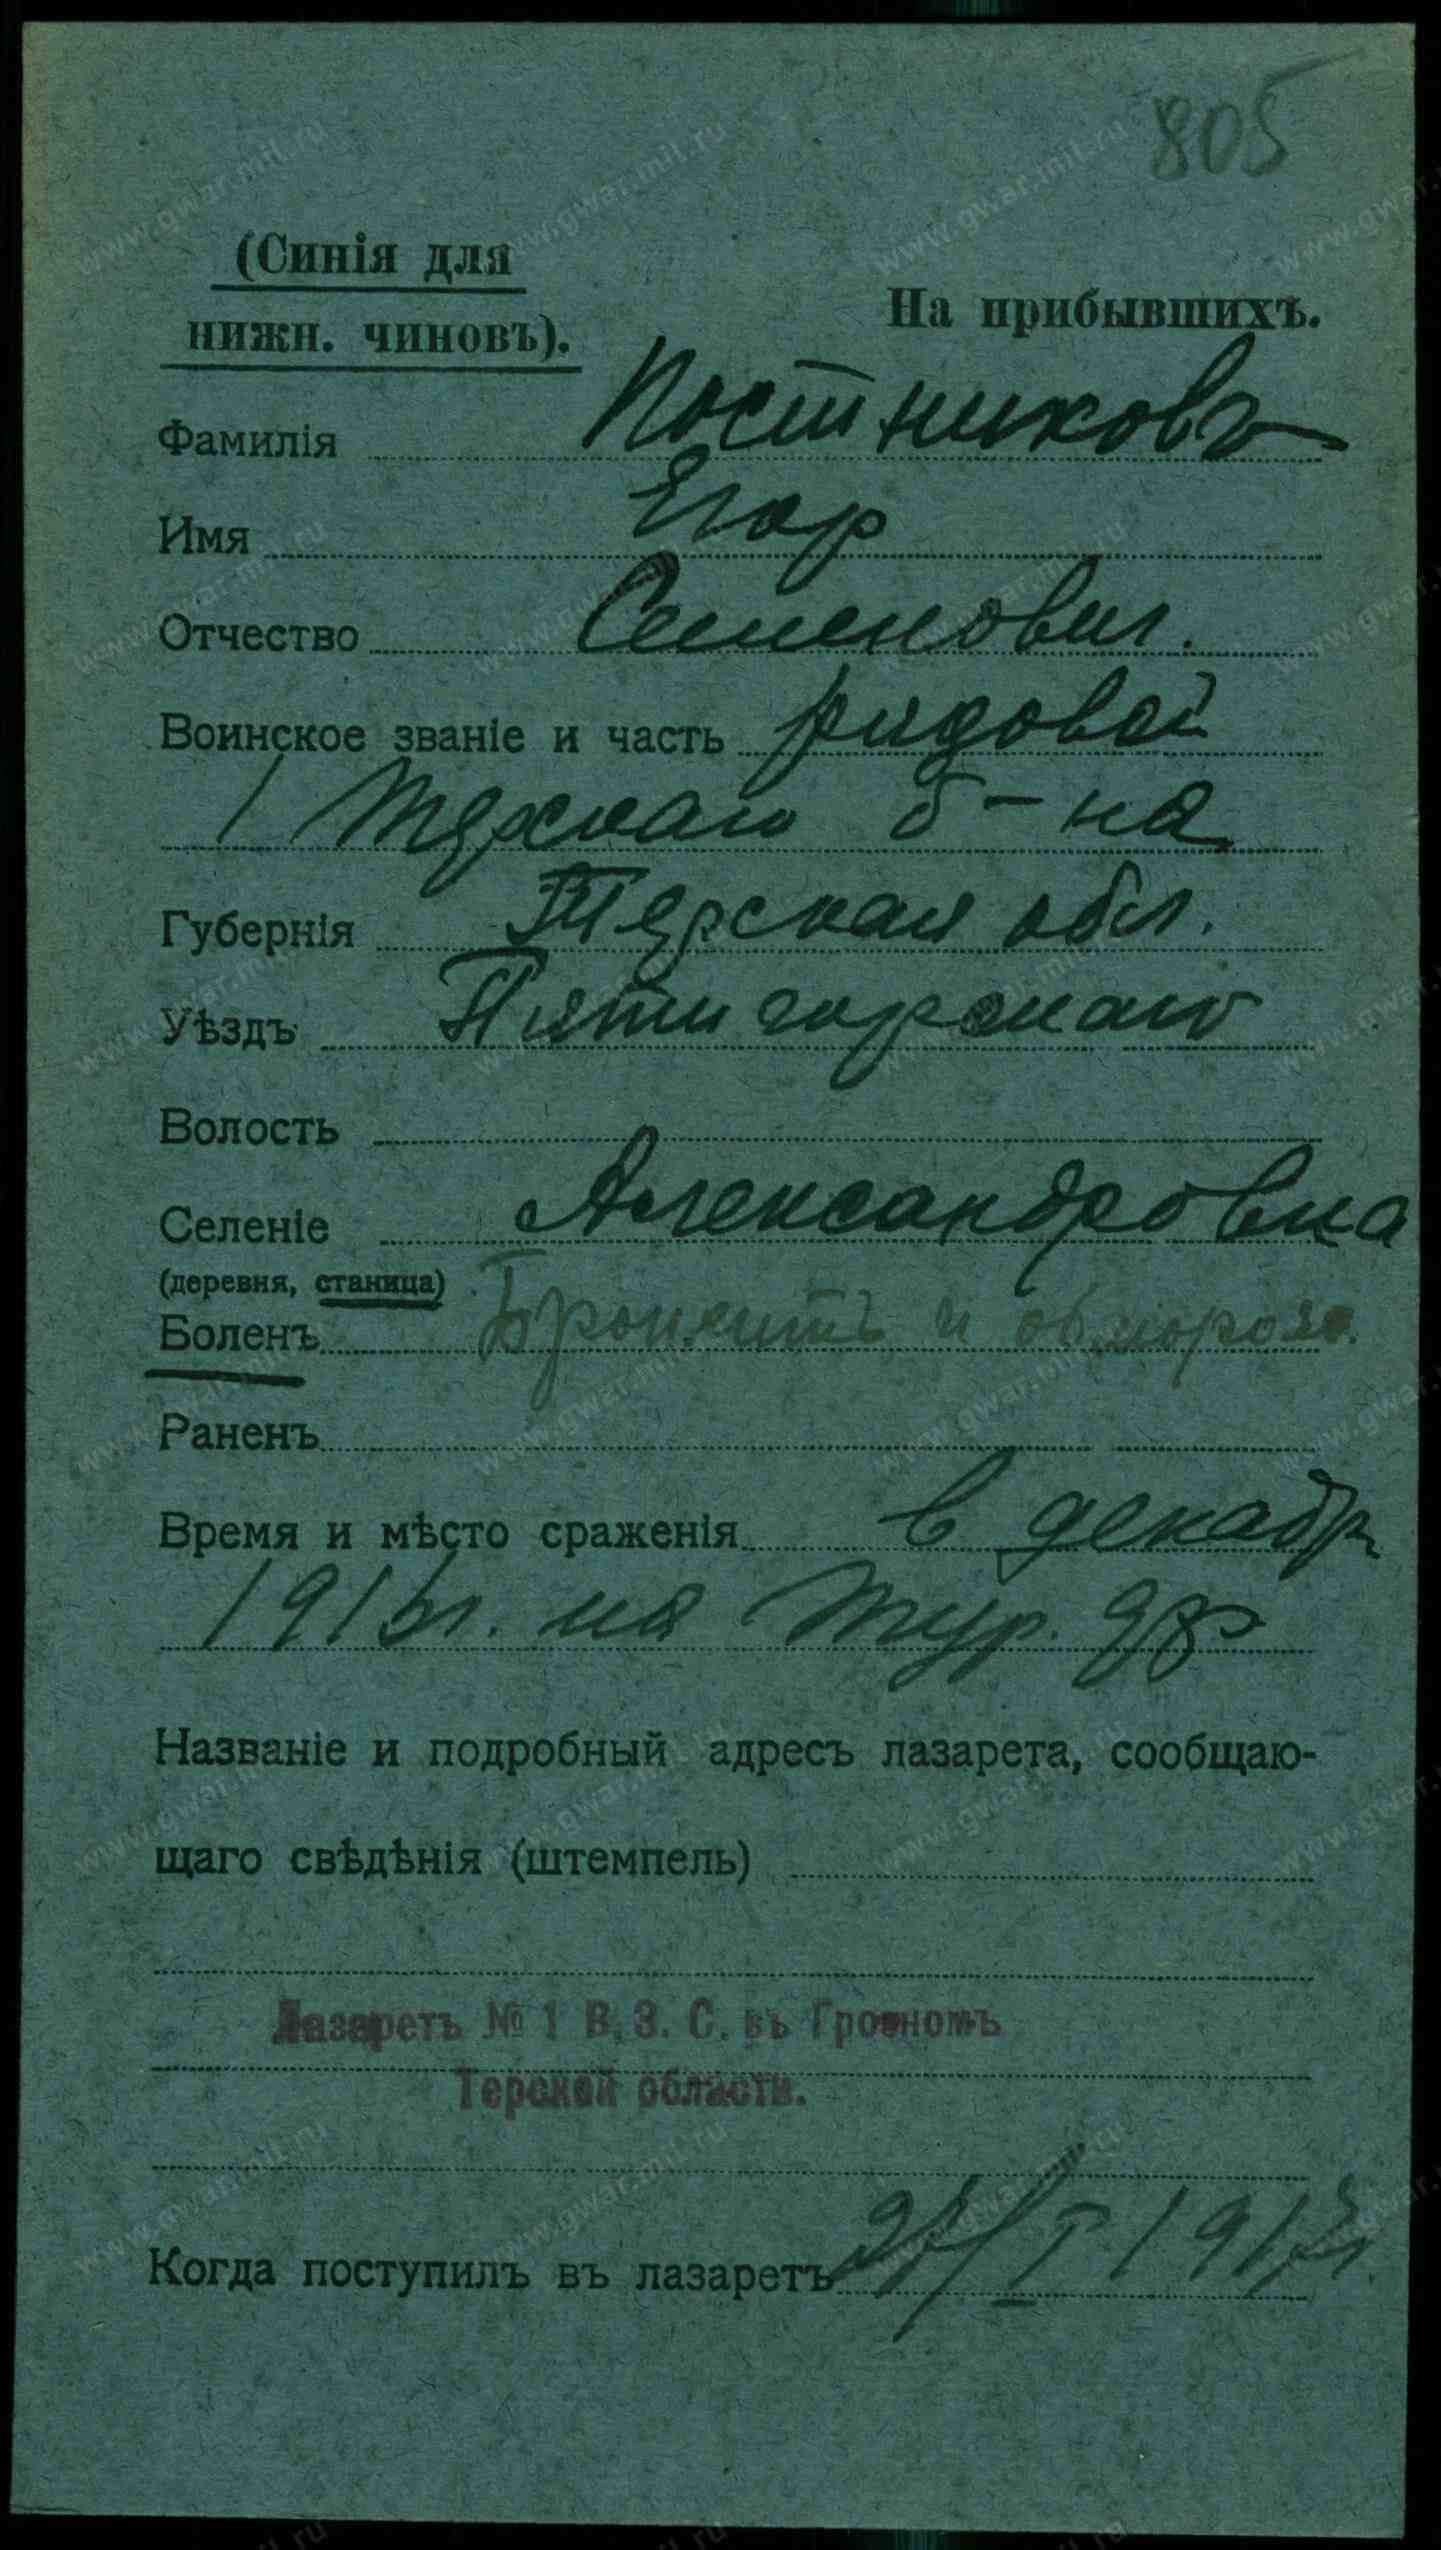 805
(Синія для
нижн. чиновъ).
На прибывшихъ.
Фамилія Постниковъ
Имя Егор
Отчество Семенович.
Воинское званіе и часть рядовой
1 Терскаго б-на
Губернія Терская обл.
Уѣздъ Пятигорскаго
Волость
Селеніе Александровка
(деревня, станица)
Боленъ Бронхитъ и обморож.
Раненъ
Время и мѣсто сраженія в декабр
1916г. на тур.
Названіе и подробный адресъ лазарета, сообщаю-
щаго свѣдѣнія (штемпель)
Лазаретъ № 1 В. З. С. въ Грозномъ
Терской области.
Когда поступилъ въ лазаретъ 27/I 1917г.
www.gwar.mil.ru